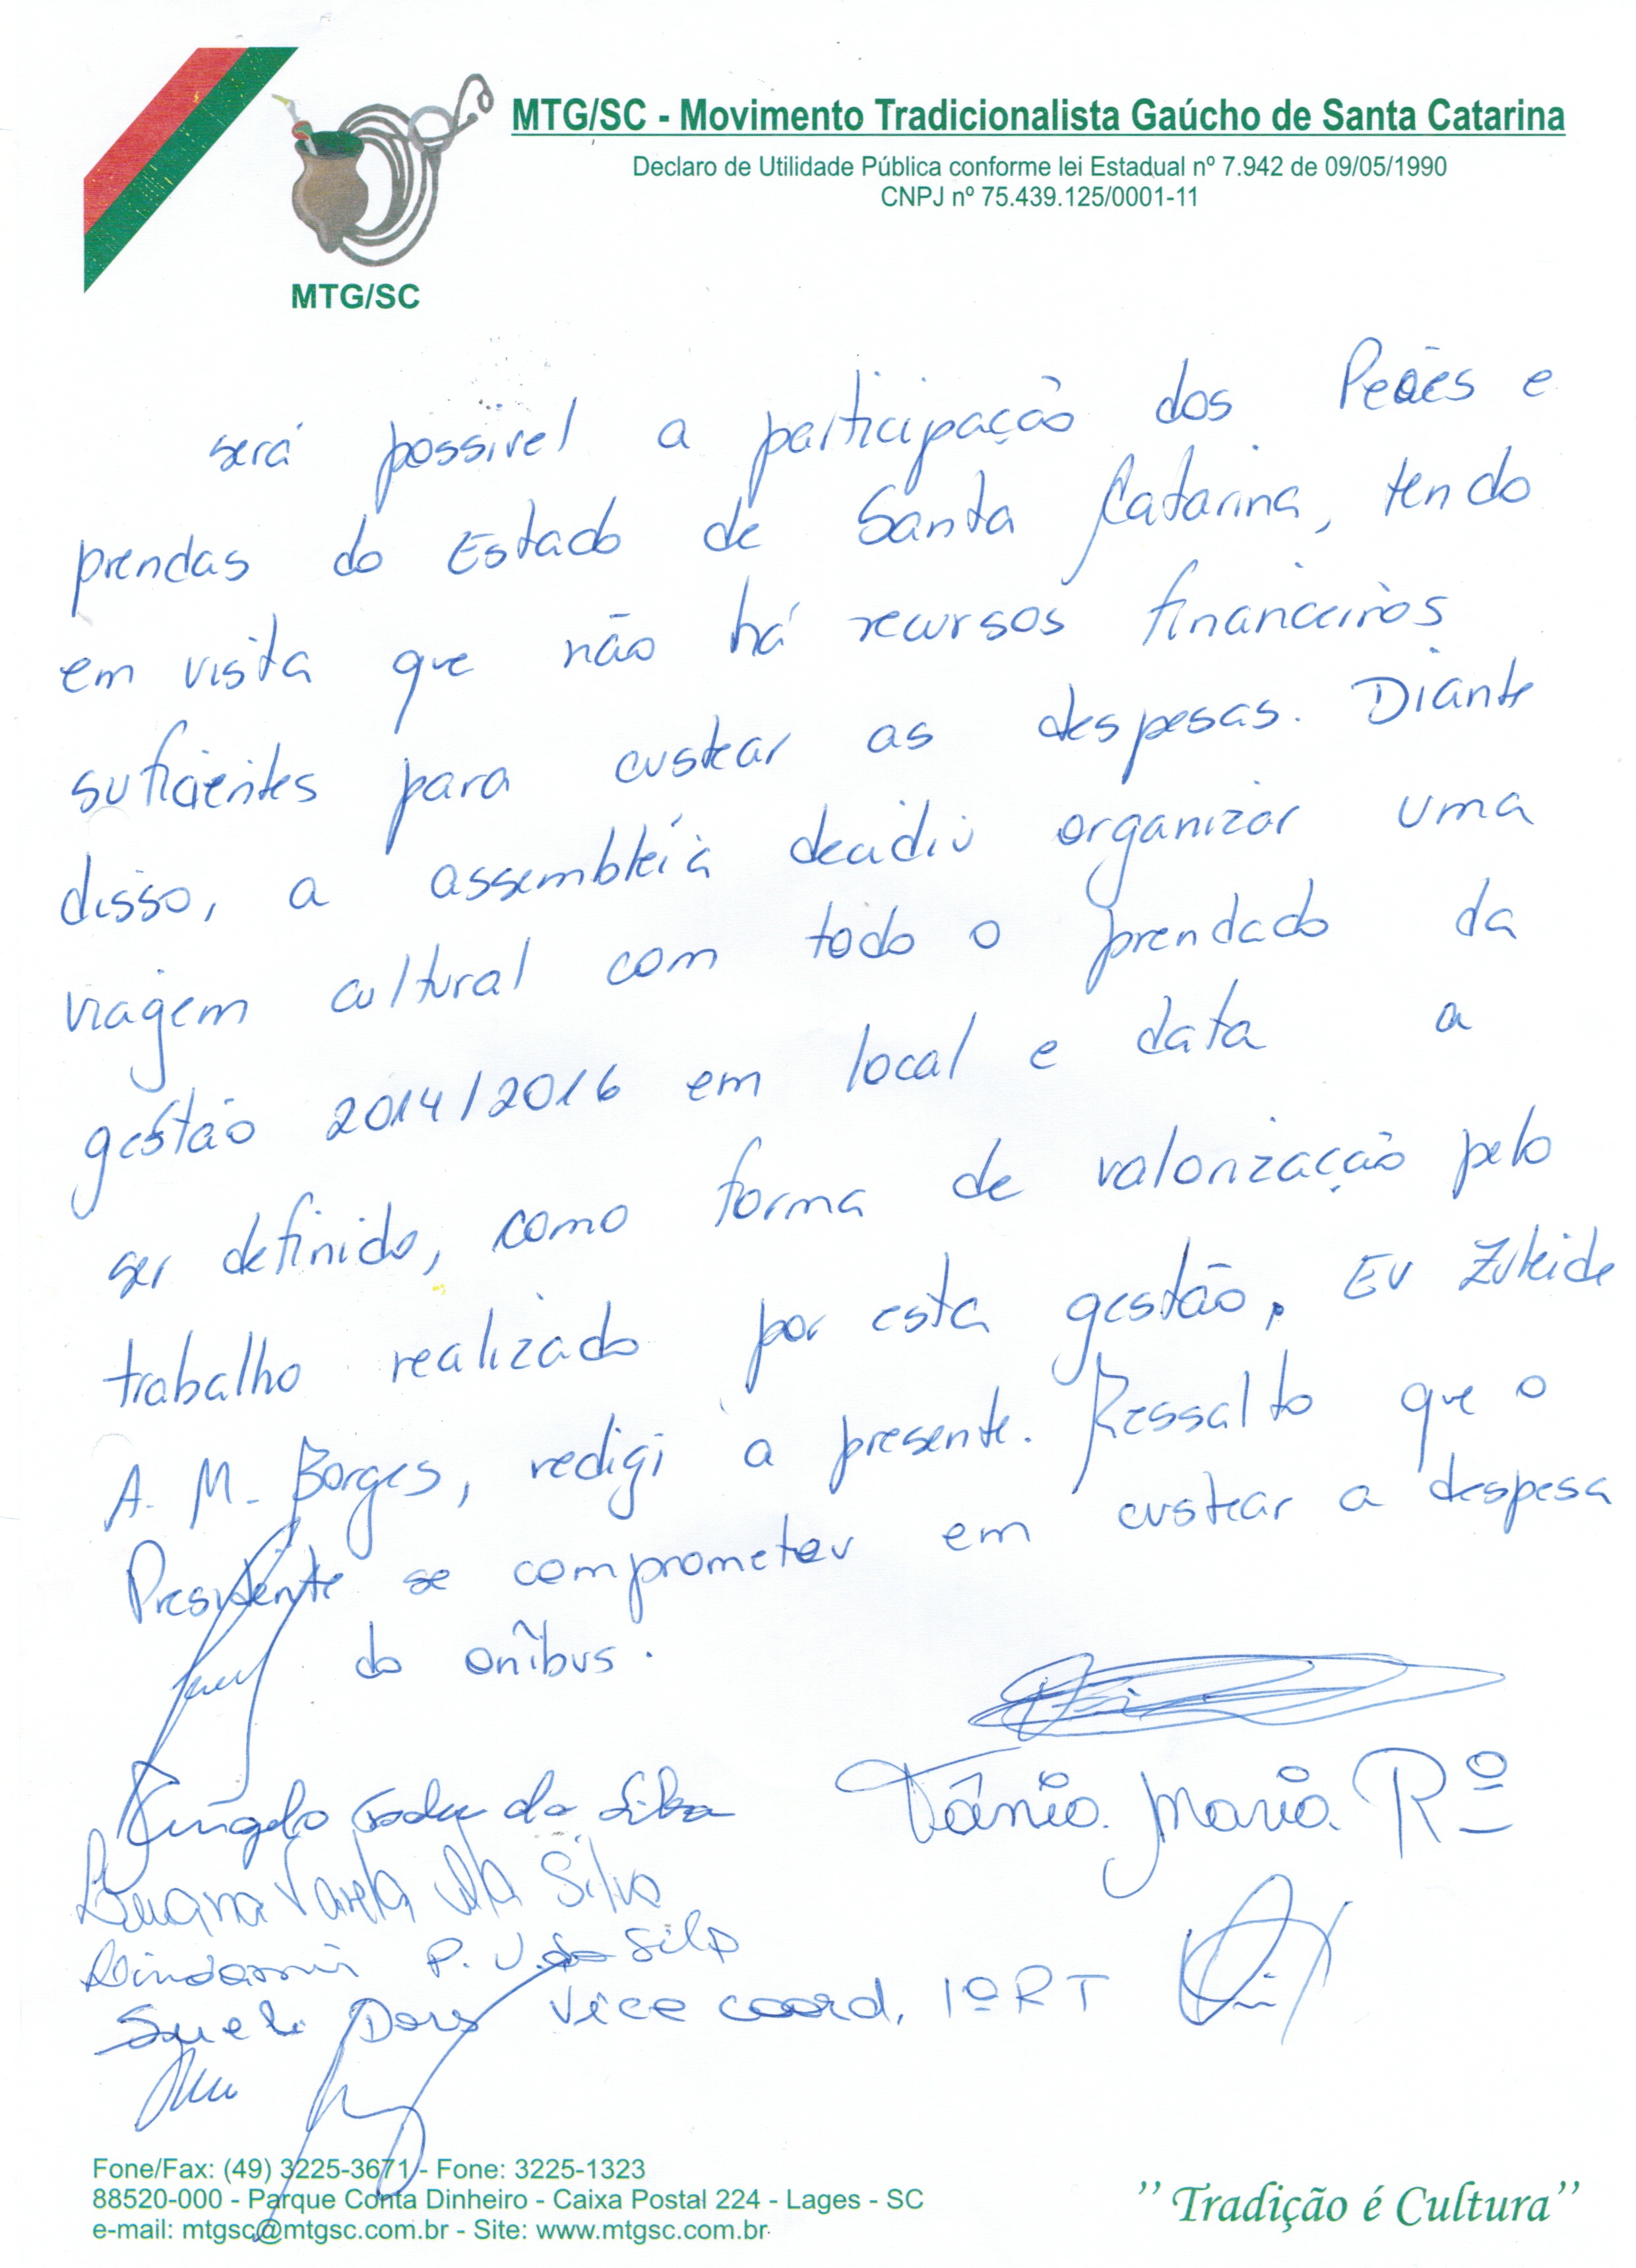 MTG/SC - Movimento Tradicionalista Gaúcho de Santa Catarina
Declaro de Utilidade Pública conforme lei Estadual nº 7.942 de 09/05/1990
CNPJ nº 75.439.125/0001-11
MTG/SC
será possível a participação dos Peões e
prendas do Estado de Santa Catarina, tendo
em vista que não há recursos financeiros
suficientes para custear as despesas. Diante
disso, a assembléia decidiu organizar uma
viagem cultural com todo o prendado da
gestão 2014/2016 em local e data a
ser definido, como forma de valorização pelo
trabalho realizado por esta gestão. Eu Zuleide
A. M. Borges, redigi a presente. Ressalto que o
Presidente se comprometeu em custear a despesa
do onibus.
da Silva
Tânia Maria Rº
Luana Varela da Silva
P. V. da Silva
Sueli Vice coord. 1º RT
Fone/Fax: (49) 3225-3671 - Fone: 3225-1323
88520-000 - Parque Conta Dinheiro - Caixa Postal 224 - Lages - SC
e-mail: mtgsc@mtgsc.com.br - Site: www.mtgsc.com.br
"Tradição é Cultura"